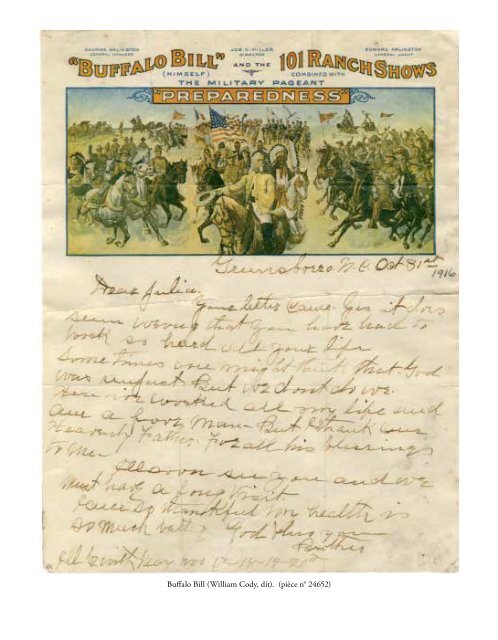 GEORGE ARLINGTON
GENERAL MANAGER
JOE C. MILLER
DIRECTOR
EDWARD ARLINGTON
GENERAL AGENT
"BUFFALO BILL" AND THE 101 RANCH SHOWS
(HIMSELF) COMBINED WITH
THE MILITARY PAGEANT
"PREPAREDNESS"
Greensboro N.C. Oct 31st 1916
Dear Julia.
Your letter came. Yes it does
seem wrong that you have had to
work so hard all your life
Some times one might think that God
was unjust. But we dont do we.
Here worked all my life and
am a poor Man. But I thank our
Heavenly Father. For all his blessings
to me.
soon see you and we
must have a long visit
so thankful health is
so much better God bless you
Brother
Buffalo Bill (William Cody, dit). (pièce n° 24652)